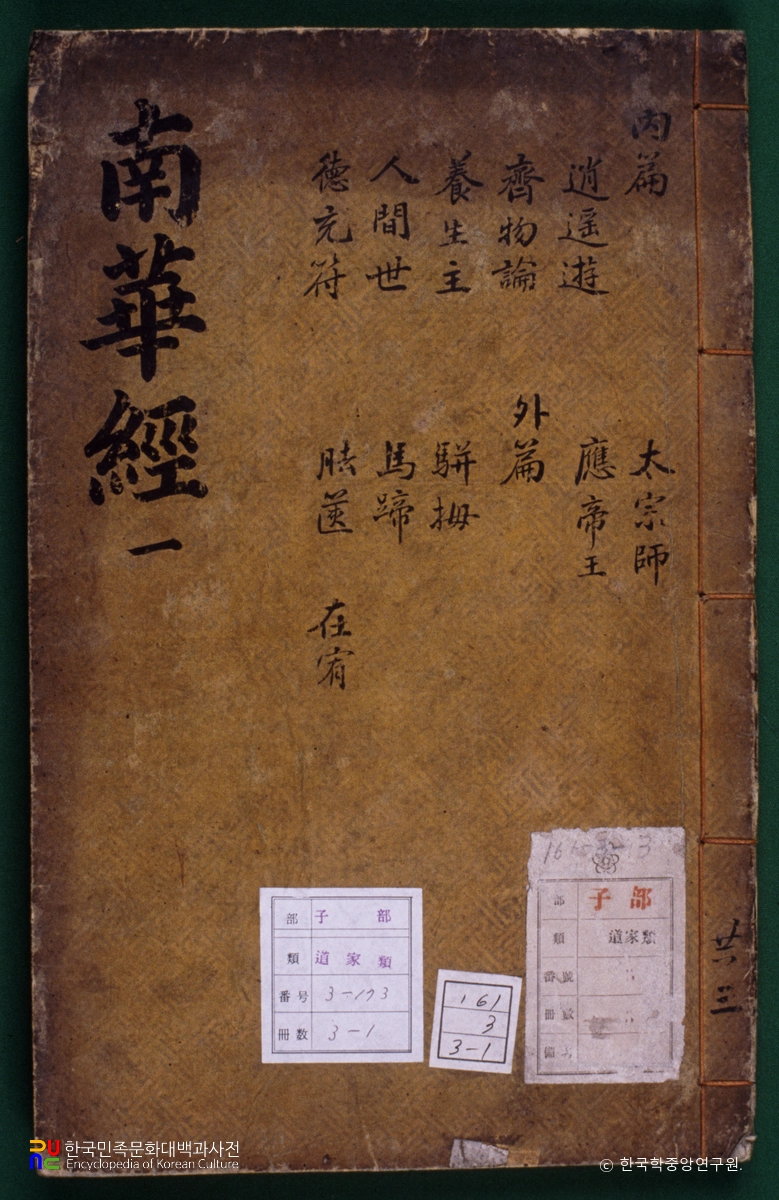 南華經 一
內篇
逍遥遊
齊物論
養生主
人間世
德充符
太宗師
應帝王
外篇
騈拇
馬蹄
胠篋
在宥
共三
部 子部
類 道家類
番号 3-173
冊数 3-1
161
3
3-1
部 子部
類 道家類
番號
冊數
한국민족문화대백과사전
Encyclopedia of Korean Culture
© 한국학중앙연구원.